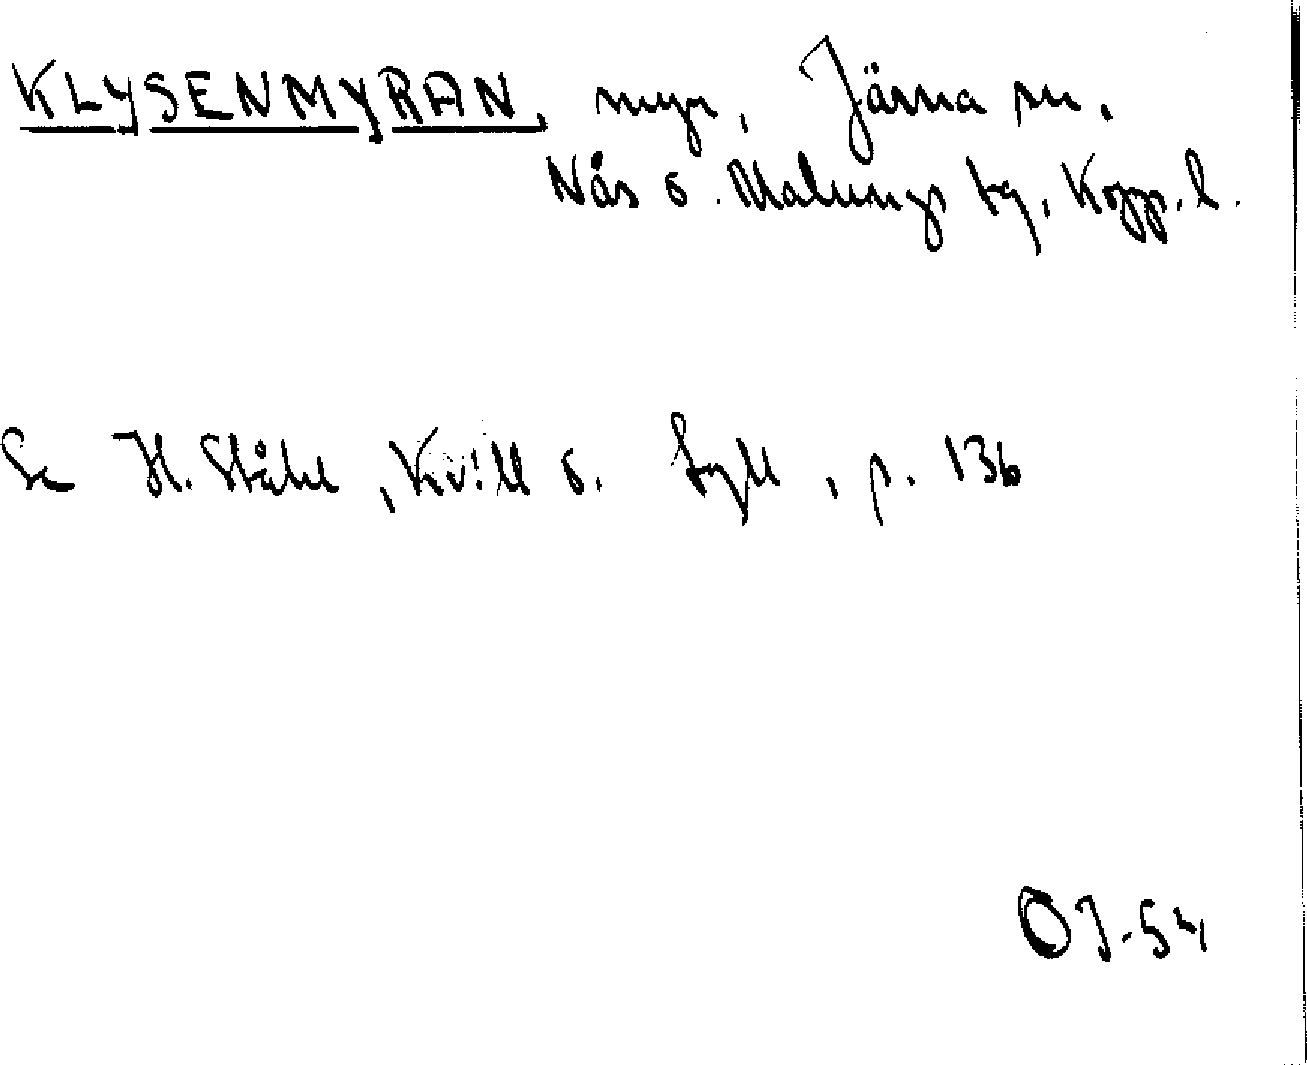 KLYSENMYRAN, myr, Järna sn.
Nås o. Malungs tg, Kopp. l.
Se H. Ståhl, Kvill o. Tyll, p. 136
OJ-54